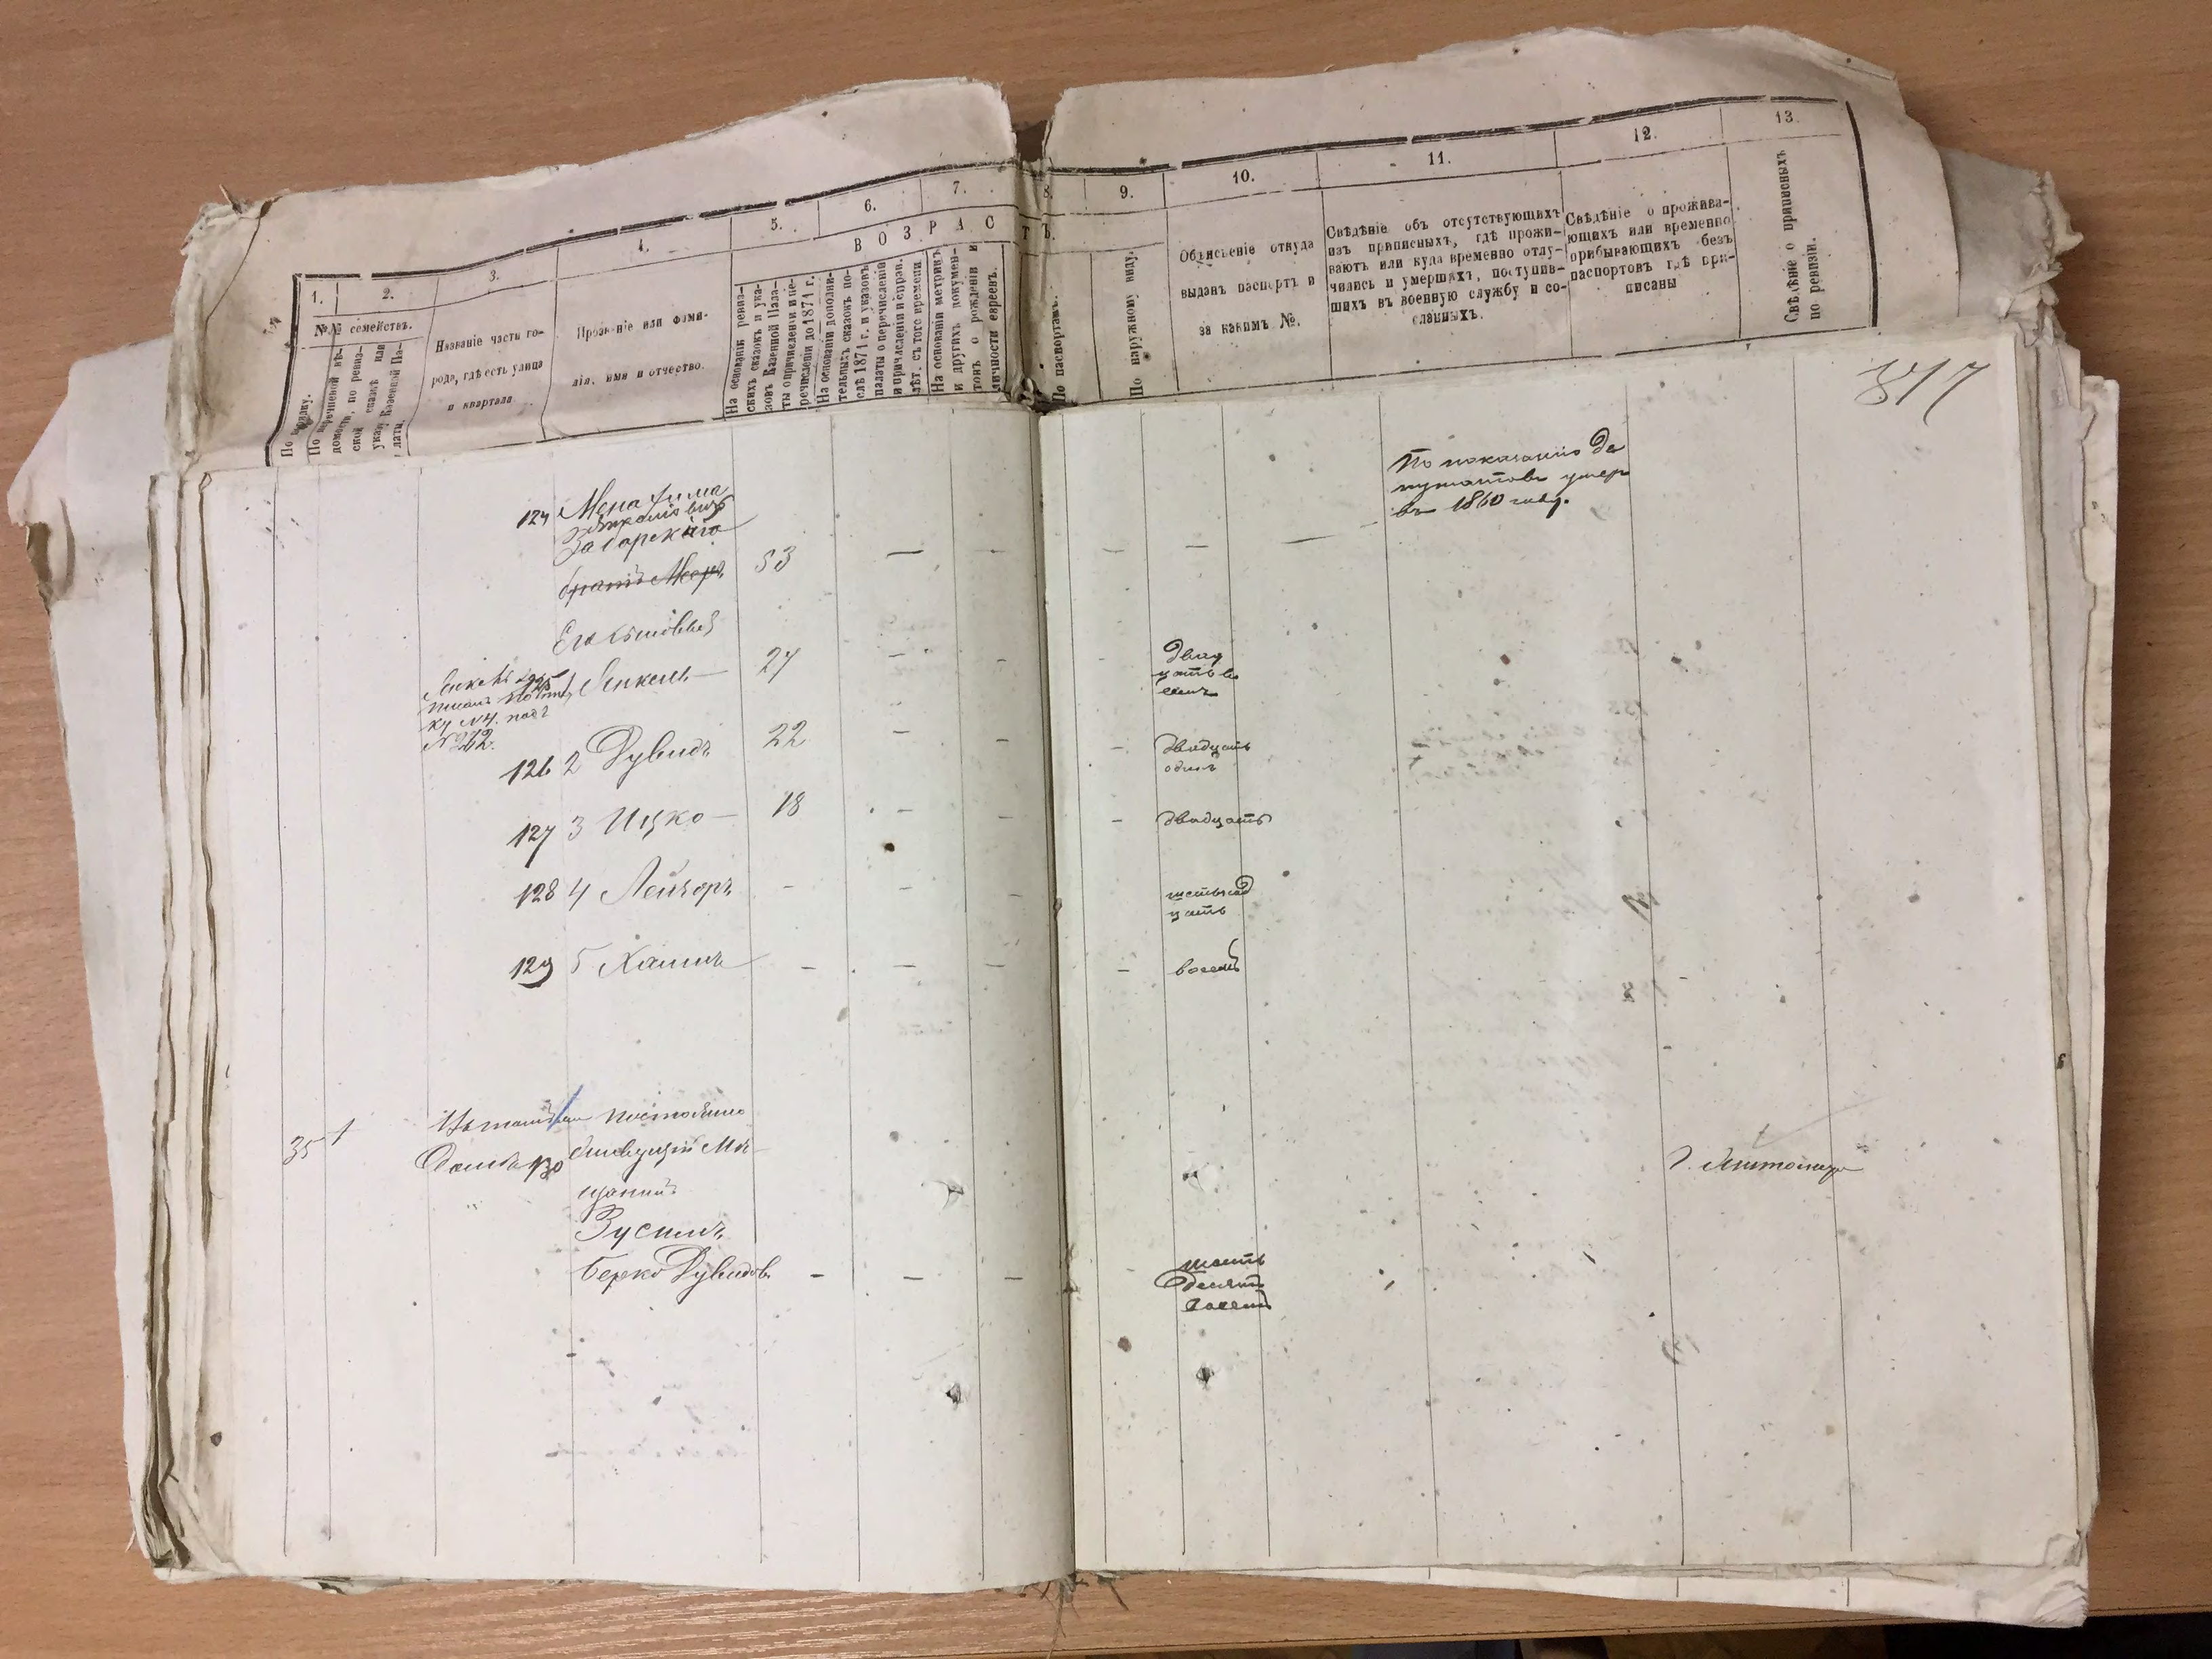 1.
2.
3.
4.
5.
6.
7.
8.
9.
10.
11.
12.
13.
В О З Р А С Т Ъ.
№№ семействъ.
По
По перечневой вѣ-
домости, по ревиз-
ской сказкѣ или
указу Казенной Па-
латы.
Названіе части го-
рода, гдѣ есть улица
и квартала
Прозваніе или фами-
лія, имя и отчество.
На основаніи ревиз-
скихъ сказокъ и ука-
зовъ Казенной Пала-
ты о причисленіи и пе-
речисленіи до 1871 г.
На основаніи дополни-
тельныхъ сказокъ по-
слѣ 1871 г. и указовъ
палаты о перечисленіи
и причисленіи и справ.
лѣт. съ того времени.
На основаніи метрикъ
и другихъ докумен-
товъ о рожденіи и
личности евреевъ.
По паспортамъ.
По наружному виду.
Объясненіе откуда
выданъ паспортъ и
за какимъ №.
Свѣдѣніе объ отсутствующихъ
изъ приписныхъ, гдѣ прожи-
ваютъ или куда временно отлу-
чились и умершихъ, поступив-
шихъ въ военную службу и со-
сланныхъ.
Свѣдѣніе о прожива-
ющихъ или временно
прибывающихъ безъ
паспортовъ гдѣ при-
писаны
Свѣдѣніе о приписныхъ
по ревизіи.
317
124 Мена
По показанію де
путатовъ умеръ
въ 1860 году.
братъ 53
Его сыновья
125 1 Янкель 27
№ 212.
двад
цать во
семь
126 2 Дувидъ 22 двадцать
одинъ
127 3 Ицко 18 двадцать
128 4 Лейзоръ шестьнад
цать
129 5 Хаимъ восемь
35 1 постоянно
130 живущій Мѣ
щанинъ
г. Житомира
Зусманъ
Берко Дувидовъ шесть
десятъ
восемь